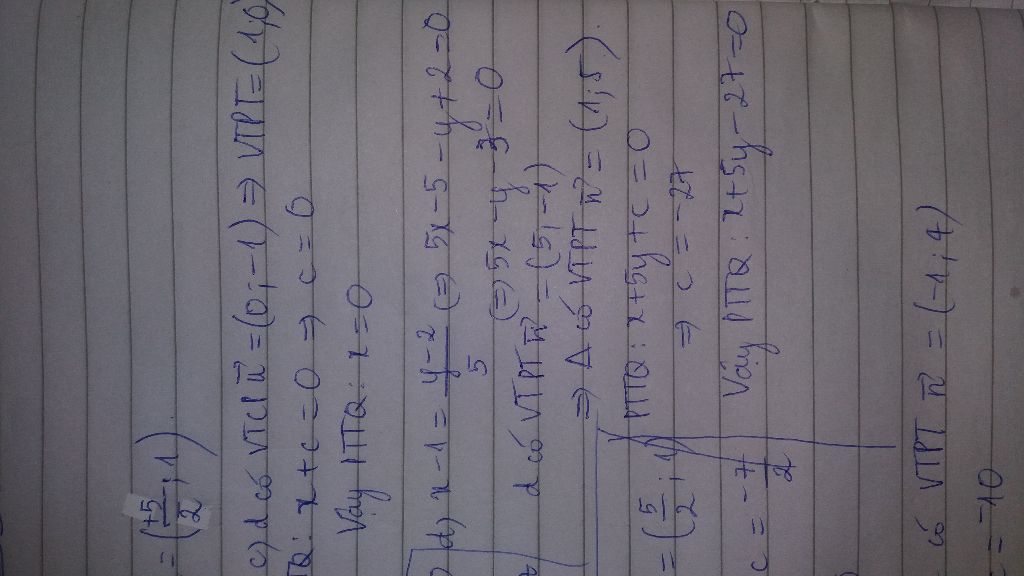 = (+5/2 ; 1)
c) d có VTCP u⃗ = (0; -1) => VTPT = (1;0)
TQ: x + c = 0 => c = 0
Vậy PTTQ: x = 0
d) x - 1 = (y - 2)/5 (=) 5x - 5 - y + 2 = 0
(=) 5x - y - 3 = 0
d có VTPT n⃗ = (5; -1)
=> Δ có VTPT n⃗ = (1; 5)
PTTQ: x + 5y + c = 0
=> c = -27
Vậy PTTQ: x + 5y - 27 = 0
= (5/2 ; 1)
c = -7/2
có VTPT n⃗ = (-1; 4)
= -10